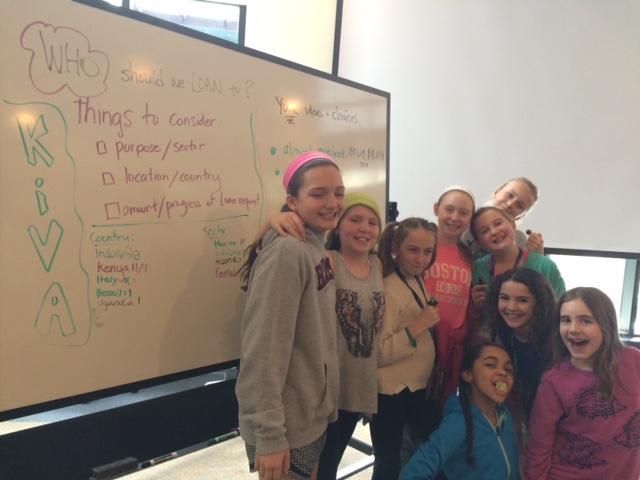 WHO should we LOAN to?
KiVA
Things to consider:
purpose/sector
location/country
amount/progress of loan request
Country:
Indonesia
Kenya
Italy
Brazil
Uganda
Sector:
Health
Homes
ideas + choices
BOSTON
1630